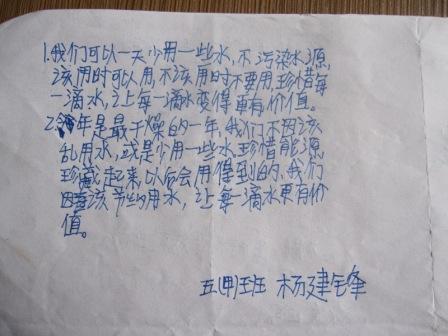 1.我们可以一天少用一些水,不污染水源,
该用时可以用,不该用时不要用,珍惜每
一滴水,让每一滴水变得更有价值。
2.今年是最干燥的一年,我们不因该
乱用水,或是少用一些水,珍惜能源,
珍藏起来以后会用得到的,我们
因该节约用水,让每一滴水更有价
值。
五(甲)班 杨建锋